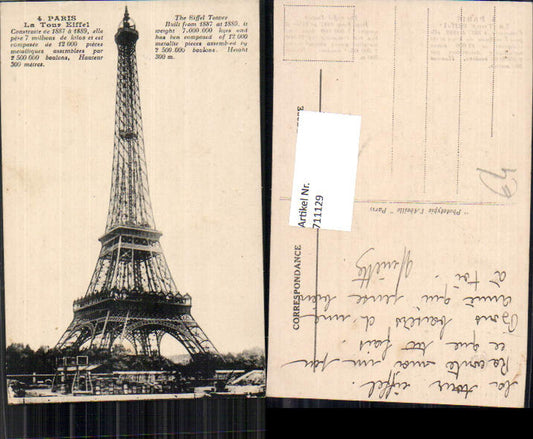 4. PARIS
La Tour Eiffel
Construite de 1887 à 1889, elle
pèse 7 millions de kilos et est
composée de 12 000 pièces
métalliques assemblées par
2 500 000 boulons. Hauteur
300 mètres.
The Eiffel Tower
Built from 1887 at 1889, is
weight 7.000 000 kgrs and
has ben composed of 12 000
metallic pieces assembled by
2 500 000 boulons. Height
300 m.
Artikel Nr.
711129
CORRESPONDANCE
" Phototypie l'Abeille " Paris
64
La tour eiffel.
Raconte moi un peu
ce que tu fais
Bons baisers d'une
amie qui pense bien
à toi.
Ginette